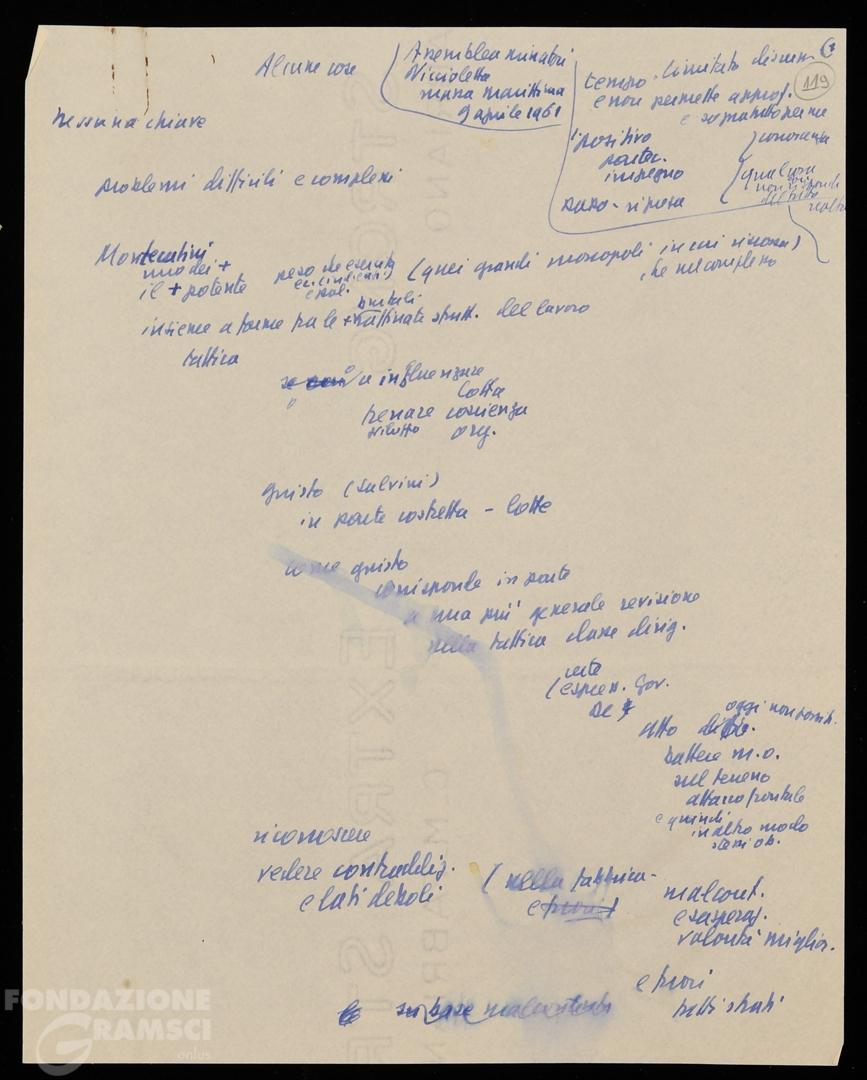 Alcune cose
Assemblea minatori
Niccioletta
massa marittima
9 aprile 1961
tempo limitato discuss.
e non permette approf.
e soprattutto per me
conoscenza
119
positivo
partec.
impegno
qualcosa
non
nessuna chiave
problemi difficili e complessi
Montecatini
uno dei +
il + potente
peso che esercita
e pol.
(quei grandi monopoli in cui
che nel complesso
brutali
insieme a forme tra le + raffinate sfrutt. del lavoro
tattica
a influenzare
lotta
frenare coscienza
sviluppo org.
giusto (Salvini)
in parte costretta - lotte
come giusto
corrisponde in parte
a una più generale revisione
nella tattica classe dirig.
(certe
espress. gov.
oggi non possib.
atto di
battere m.o.
sul terreno
attacco frontale
e quindi
in altro modo
riconoscere
vedere contraddiz.
e lati deboli
(nella fabbrica -
e fuori
malcont.
esasperaz.
volontà miglior.
e fuori
tutti strati
su base malcontento
FONDAZIONE
GRAMSCI
onlus